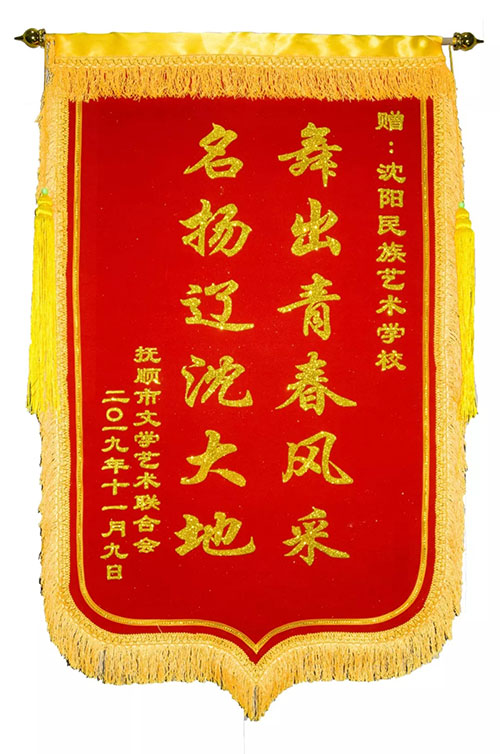 赠：沈阳民族艺术学校
舞出青春风采
名扬辽沈大地
抚顺市文学艺术联合会
二〇一九年十一月九日